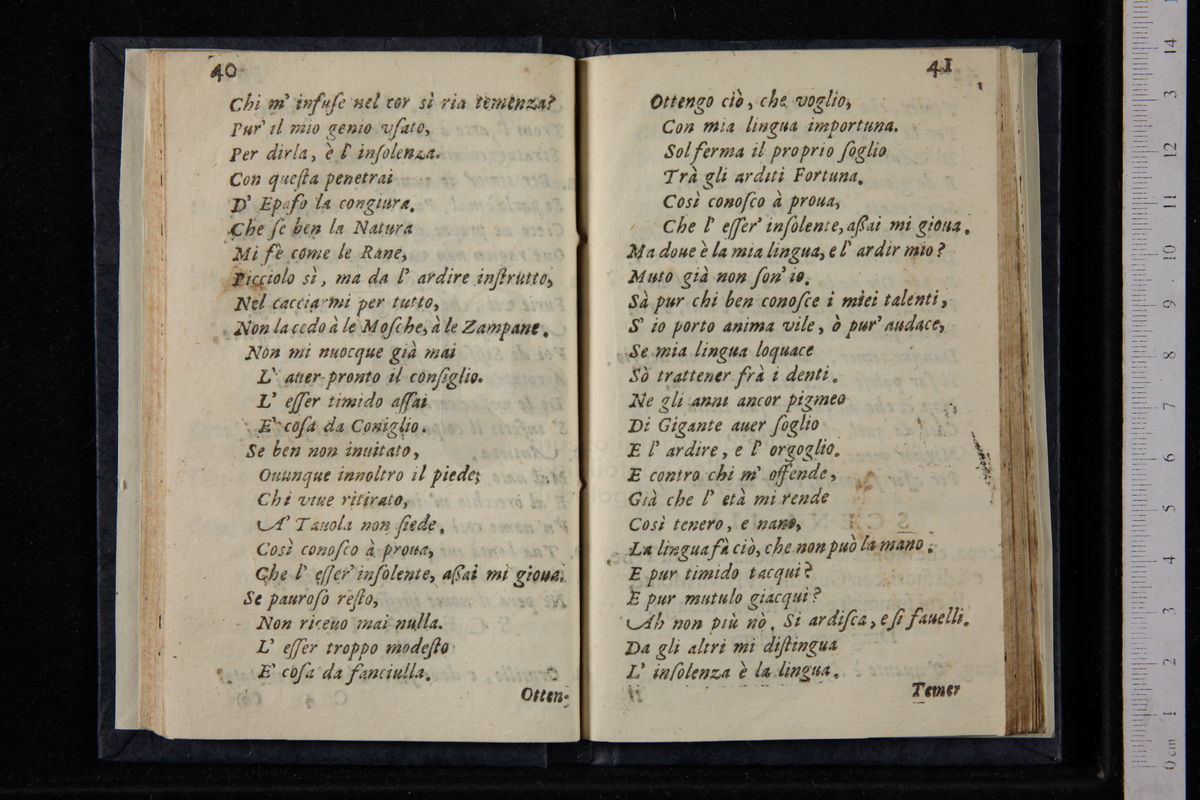 40
Chi m' infuſe nel cor sì ria temenza?
Pur' il mio genio vſato,
Per dirla, è l' inſolenza.
Con queſta penetrai
D' Epafo la congiura.
Che ſe ben la Natura
Mi fè come le Rane,
Picciolo sì, ma da l' ardire inſtrutto,
Nel cacciarmi per tutto,
Non la cedo à le Moſche, à le Zampane.
Non mi nuocque già mai
L' auer pronto il conſiglio.
L' eſſer timido aſſai
E' coſa da Coniglio.
Se ben non inuitato,
Ouunque innoltro il piede;
Chi viue ritirato,
A' Tauola non ſiede.
Così conoſco à proua,
Che l' eſſer' inſolente, aßai mi gioua.
Se pauroſo reſto,
Non riceuo mai nulla.
L' eſſer troppo modeſto
E' coſa da fanciulla.
Otten-
41
Ottengo ciò, che voglio,
Con mia lingua importuna.
Sol ferma il proprio ſoglio
Trà gli arditi Fortuna.
Così conoſco à proua,
Che l' eſſer' inſolente, aßai mi gioua.
Ma doue è la mia lingua, e l' ardir mio?
Muto già non ſon' io.
Sà pur chi ben conoſce i miei talenti,
S' io porto anima vile, ò pur' audace,
Se mia lingua loquace
Sò trattener frà i denti.
Ne gli anni ancor pigmeo
Di Gigante auer ſoglio
E l' ardire, e l' orgoglio.
E contro chi m' offende,
Già che l' età mi rende
Così tenero, e nano,
La lingua fà ciò, che non può la mano.
E pur timido tacqui?
E pur mutulo giacqui?
Ah non più nò. Si ardiſca, e ſi fauelli.
Da gli altri mi diſtingua
L' inſolenza è la lingua.
Temer
14
3
12
11
10
9
8
7
6
5
4
3
2
1
0 cm